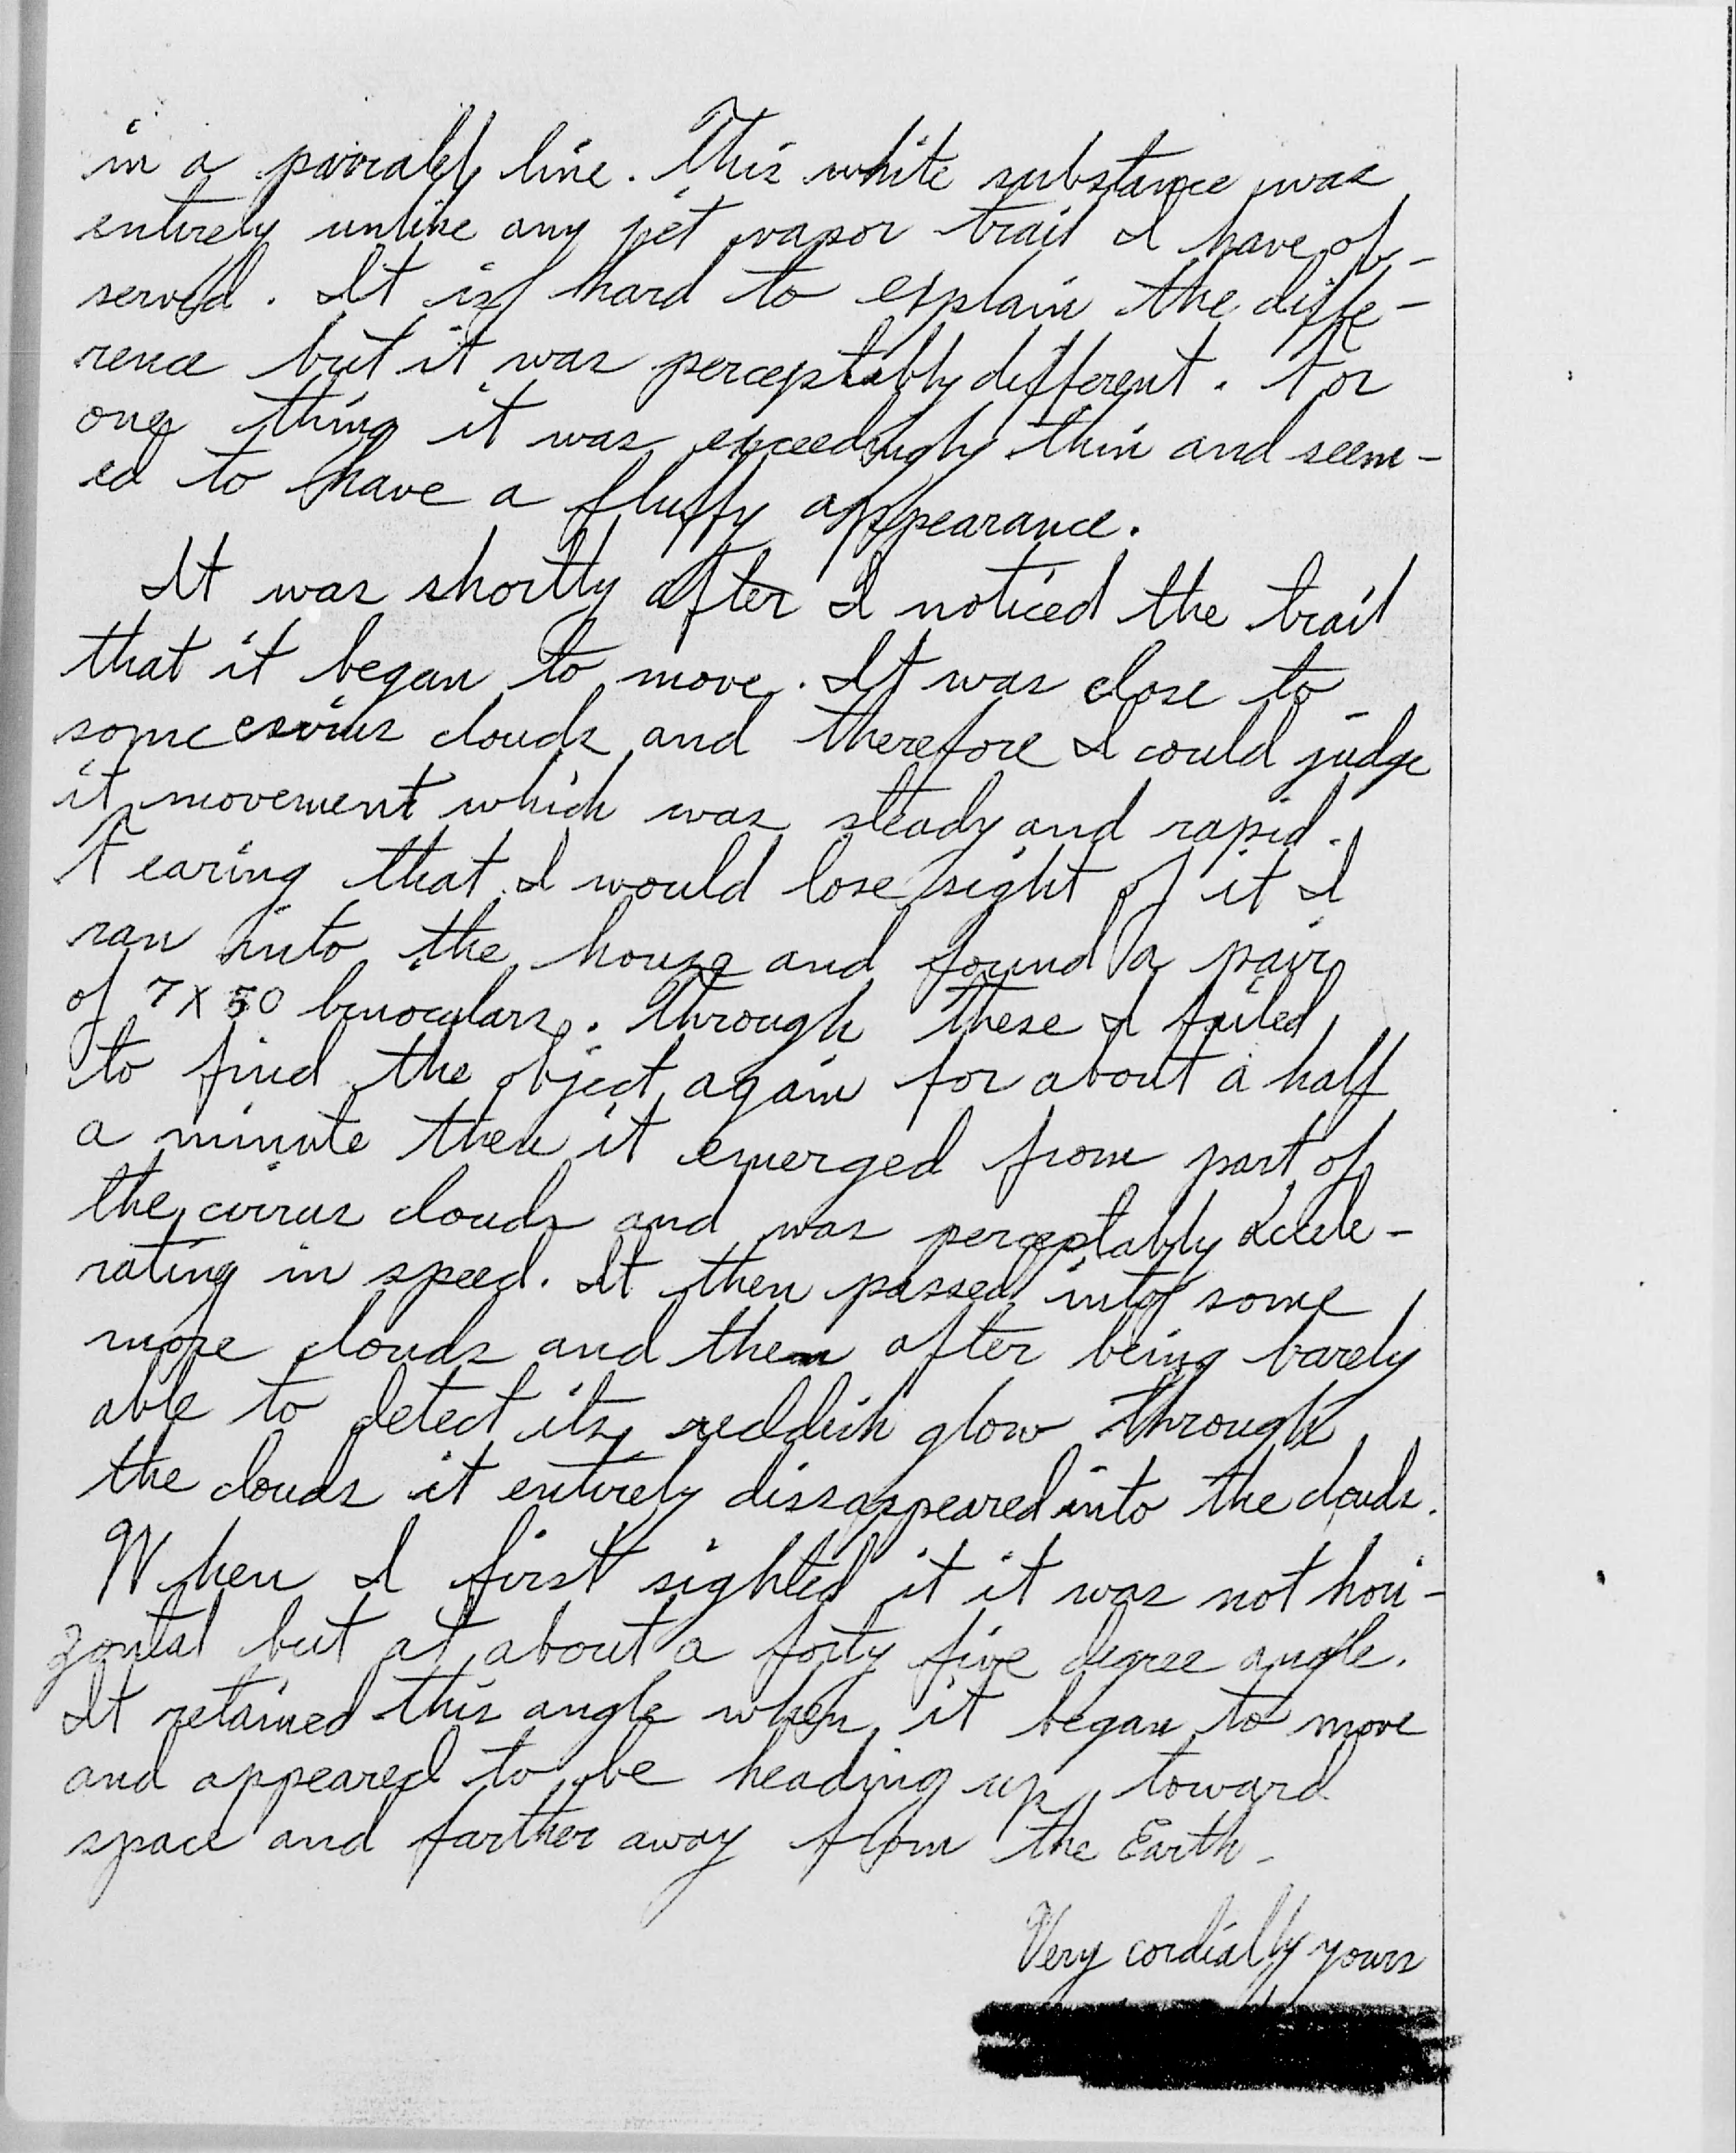 in a parralel line. This white substance was
entirely unlike any jet vapor trail I have ob-
served. It is hard to explain the diffe-
rence but it was perceptably different. For
one thing it was exceedingly thin and seem-
ed to have a fluffy appearance.
It was shortly after I noticed the trail
that it began to move. It was close to
some cirrus clouds and therefore I could judge
it movement which was steady and rapid.
Fearing that I would lose sight of it I
ran into the house and found a pair
of 7X50 binoculars. Through these I failed
to find the object again for about a half
a minute then it emerged from part of
the cirrus clouds and was perceptably accele-
rating in speed. It then passed into some
more clouds and then after being barely
able to detect its reddish glow through
the clouds it entirely dissappeared into the clouds.
When I first sighted it it was not hori-
zontal but at about a forty five degree angle.
It retained this angle when it began to move
and appeared to be heading up toward
space and farther away from the Earth.
Very cordially yours